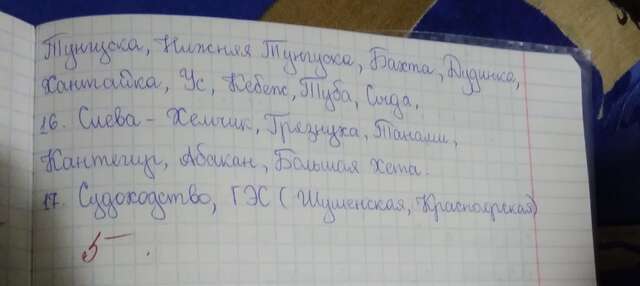 Тунгуска, Нижняя Тунгуска, Бахта, Дудинка,
Хантайка, Ус, Кебеж, Туба, Сыда,
16. Слева - Хемчик, Грязнуха, Танами,
Кантегир, Абакан, Большая Хета.
17. Судоходство, ГЭС (Шушенская, Красноярская)
5-.